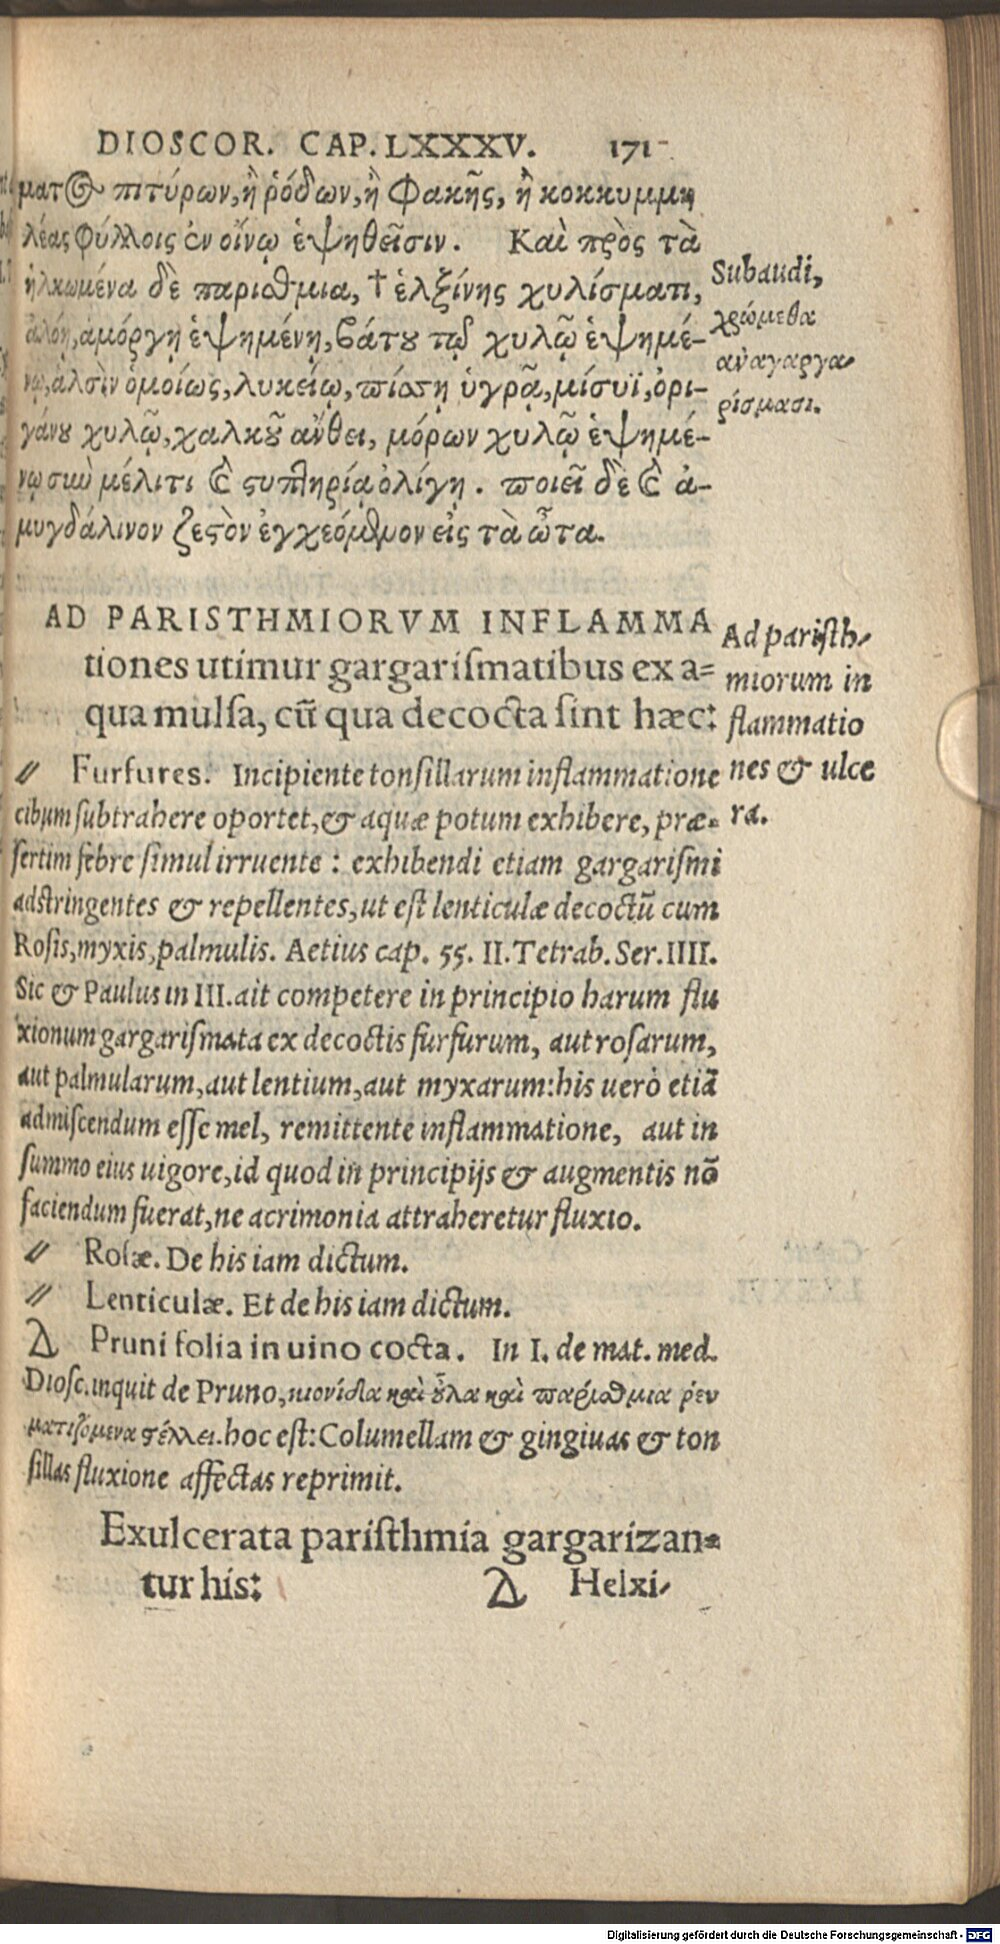 DIOSCOR. CAP. LXXXV. 171
ματος πιτύρων, ἢ ῥόδων, ἢ φακῆς, ἢ κοκκυμμη
λέας φύλλοις ἐν οἴνῳ ἑψηθεῖσιν. Καὶ πρὸς τὰ
ἡλκωμένα δὲ παρίσθμια, † ἑλξίνης χυλίσματι,
ἀλόῃ, ἀμόργῃ ἑψημένῃ, βάτου τῷ χυλῷ ἑψημέ-
νῳ, ἁλσὶν ὁμοίως, λυκείῳ, πίσσῃ ὑγρᾷ, μίσυϊ, ὀρι-
γάνου χυλῷ, χαλκοῦ ἄνθει, μόρων χυλῷ ἑψημέ-
νῳ σὺν μέλιτι καὶ στυπτηρίᾳ ὀλίγῃ. ποιεῖ δὲ καὶ ἀ-
μυγδάλινον ζεστὸν ἐγχεόμενον εἰς τὰ ὦτα.
Subaudi,
χρώμεθα
ἀναγαργα-
ρίσμασι.
AD PARISTHMIORVM INFLAMMA
tiones utimur gargarismatibus ex a=
qua mulsa, cū qua decocta sint hæc:
Ad paristh-
miorum in
flammatio
nes & ulce
ra.
〃 Furfures. Incipiente tonsillarum inflammatione
cibum subtrahere oportet, & aquæ potum exhibere, præ=
sertim febre simul irruente : exhibendi etiam gargarismi
adstringentes & repellentes, ut est lenticulæ decoctū cum
Rosis, myxis, palmulis. Aetius cap. 55. II. Tetrab. Ser. IIII.
Sic & Paulus in III. ait competere in principio harum flu
xionum gargarismata ex decoctis furfurum, aut rosarum,
aut palmularum, aut lentium, aut myxarum: his uerò etiā
admiscendum esse mel, remittente inflammatione, aut in
summo eius uigore, id quod in principijs & augmentis nō
faciendum fuerat, ne acrimonia attraheretur fluxio.
〃 Rosæ. De his iam dictum.
〃 Lenticulæ. Et de his iam dictum.
Δ Pruni folia in uino cocta. In I. de mat. med.
Diosc. inquit de Pruno, κιονίδα καὶ οὖλα καὶ παρίσθμια ῥευ
ματιζόμενα στέλλει. hoc est: Columellam & gingiuas & ton
sillas fluxione affectas reprimit.
Exulcerata paristhmia gargarizan=
tur his:
Δ Helxi-
Digitalisierung gefördert durch die Deutsche Forschungsgemeinschaft - DFG